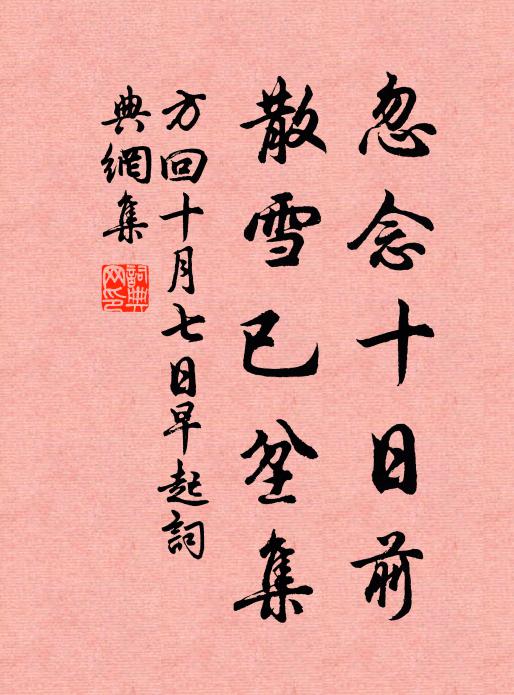 忽念十日前
散雪已坌集
方回十月七日早起詞
典網集
詞典
网印